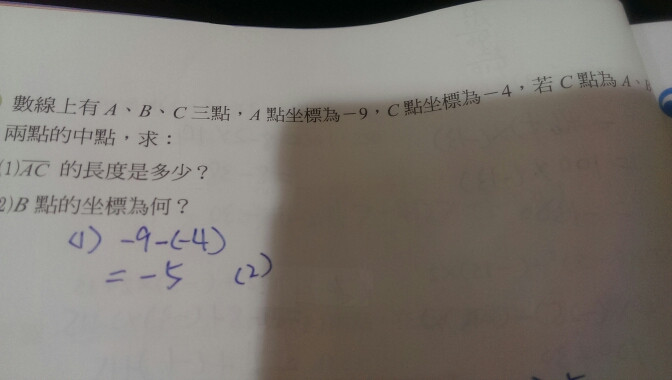 數線上有 A、B、C 三點，A 點坐標為－9，C 點坐標為－4，若 C 點為 A、B
兩點的中點，求：
(1)AC 的長度是多少？
2)B 點的坐標為何？
(1) -9-(-4)
= -5 (2)